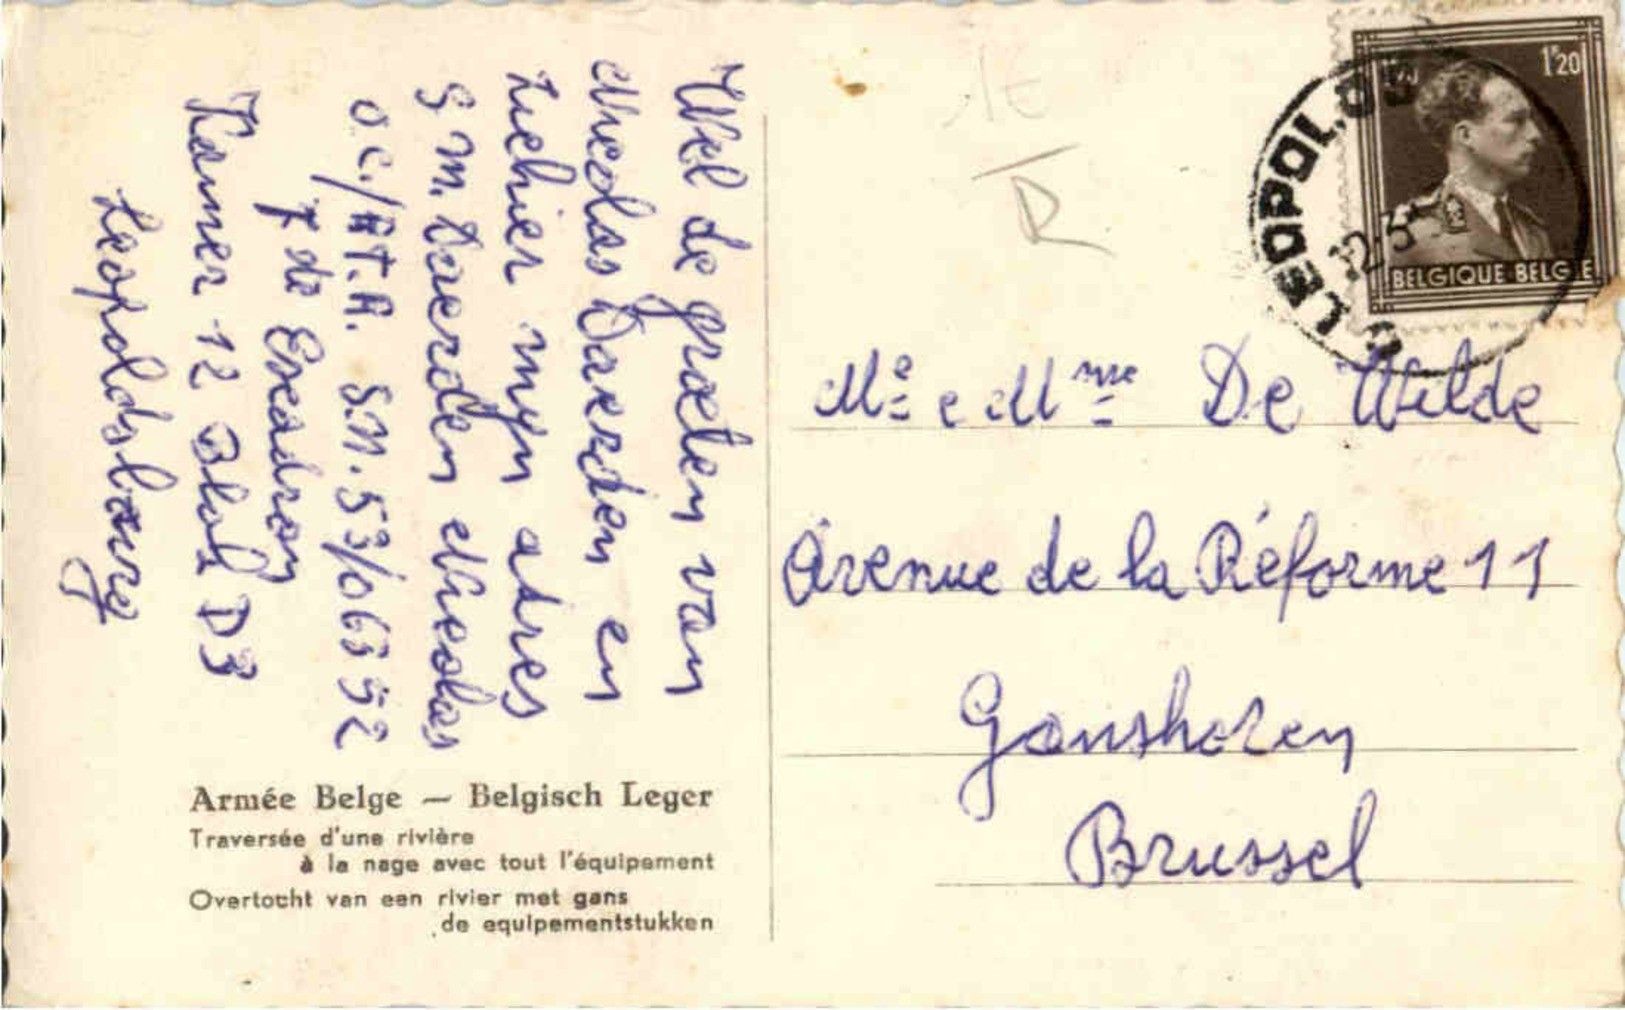 Wel de groeten van
Nicolas Daerden en
hier myn adres
S M. Daerden Nicolas
O.C./AT.R. S.M. 53/06352
7 de Escadron
Kamer 12 Blok D3
Leopoldsburg
Armée Belge — Belgisch Leger
Traversée d'une rivière
à la nage avec tout l'équipement
Overtocht van een rivier met gans
de equipementstukken
1'20
BELGIQUE BELGIE
LEOPOL
1€
R
Mr e Mme De Wilde
Avenue de la Réforme 11
Ganshoren
Brussel